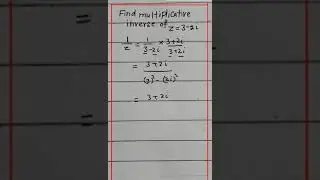 Find multiplicative
inverse of z = 3-2i
1/z = 1/(3-2i) × (3+2i)/(3+2i)
= (3+2i)/((3)² - (2i)²)
= 3+2i